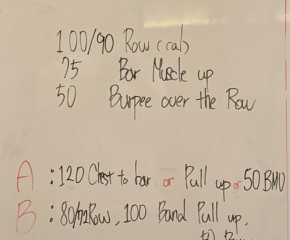 100/90 Row (cal)
75 Bar Muscle up
50 Burpee over the Row
A : 120 Chest to bar or Pull up or 50 BMU
B : 80/72 Row, 100 Band Pull up,